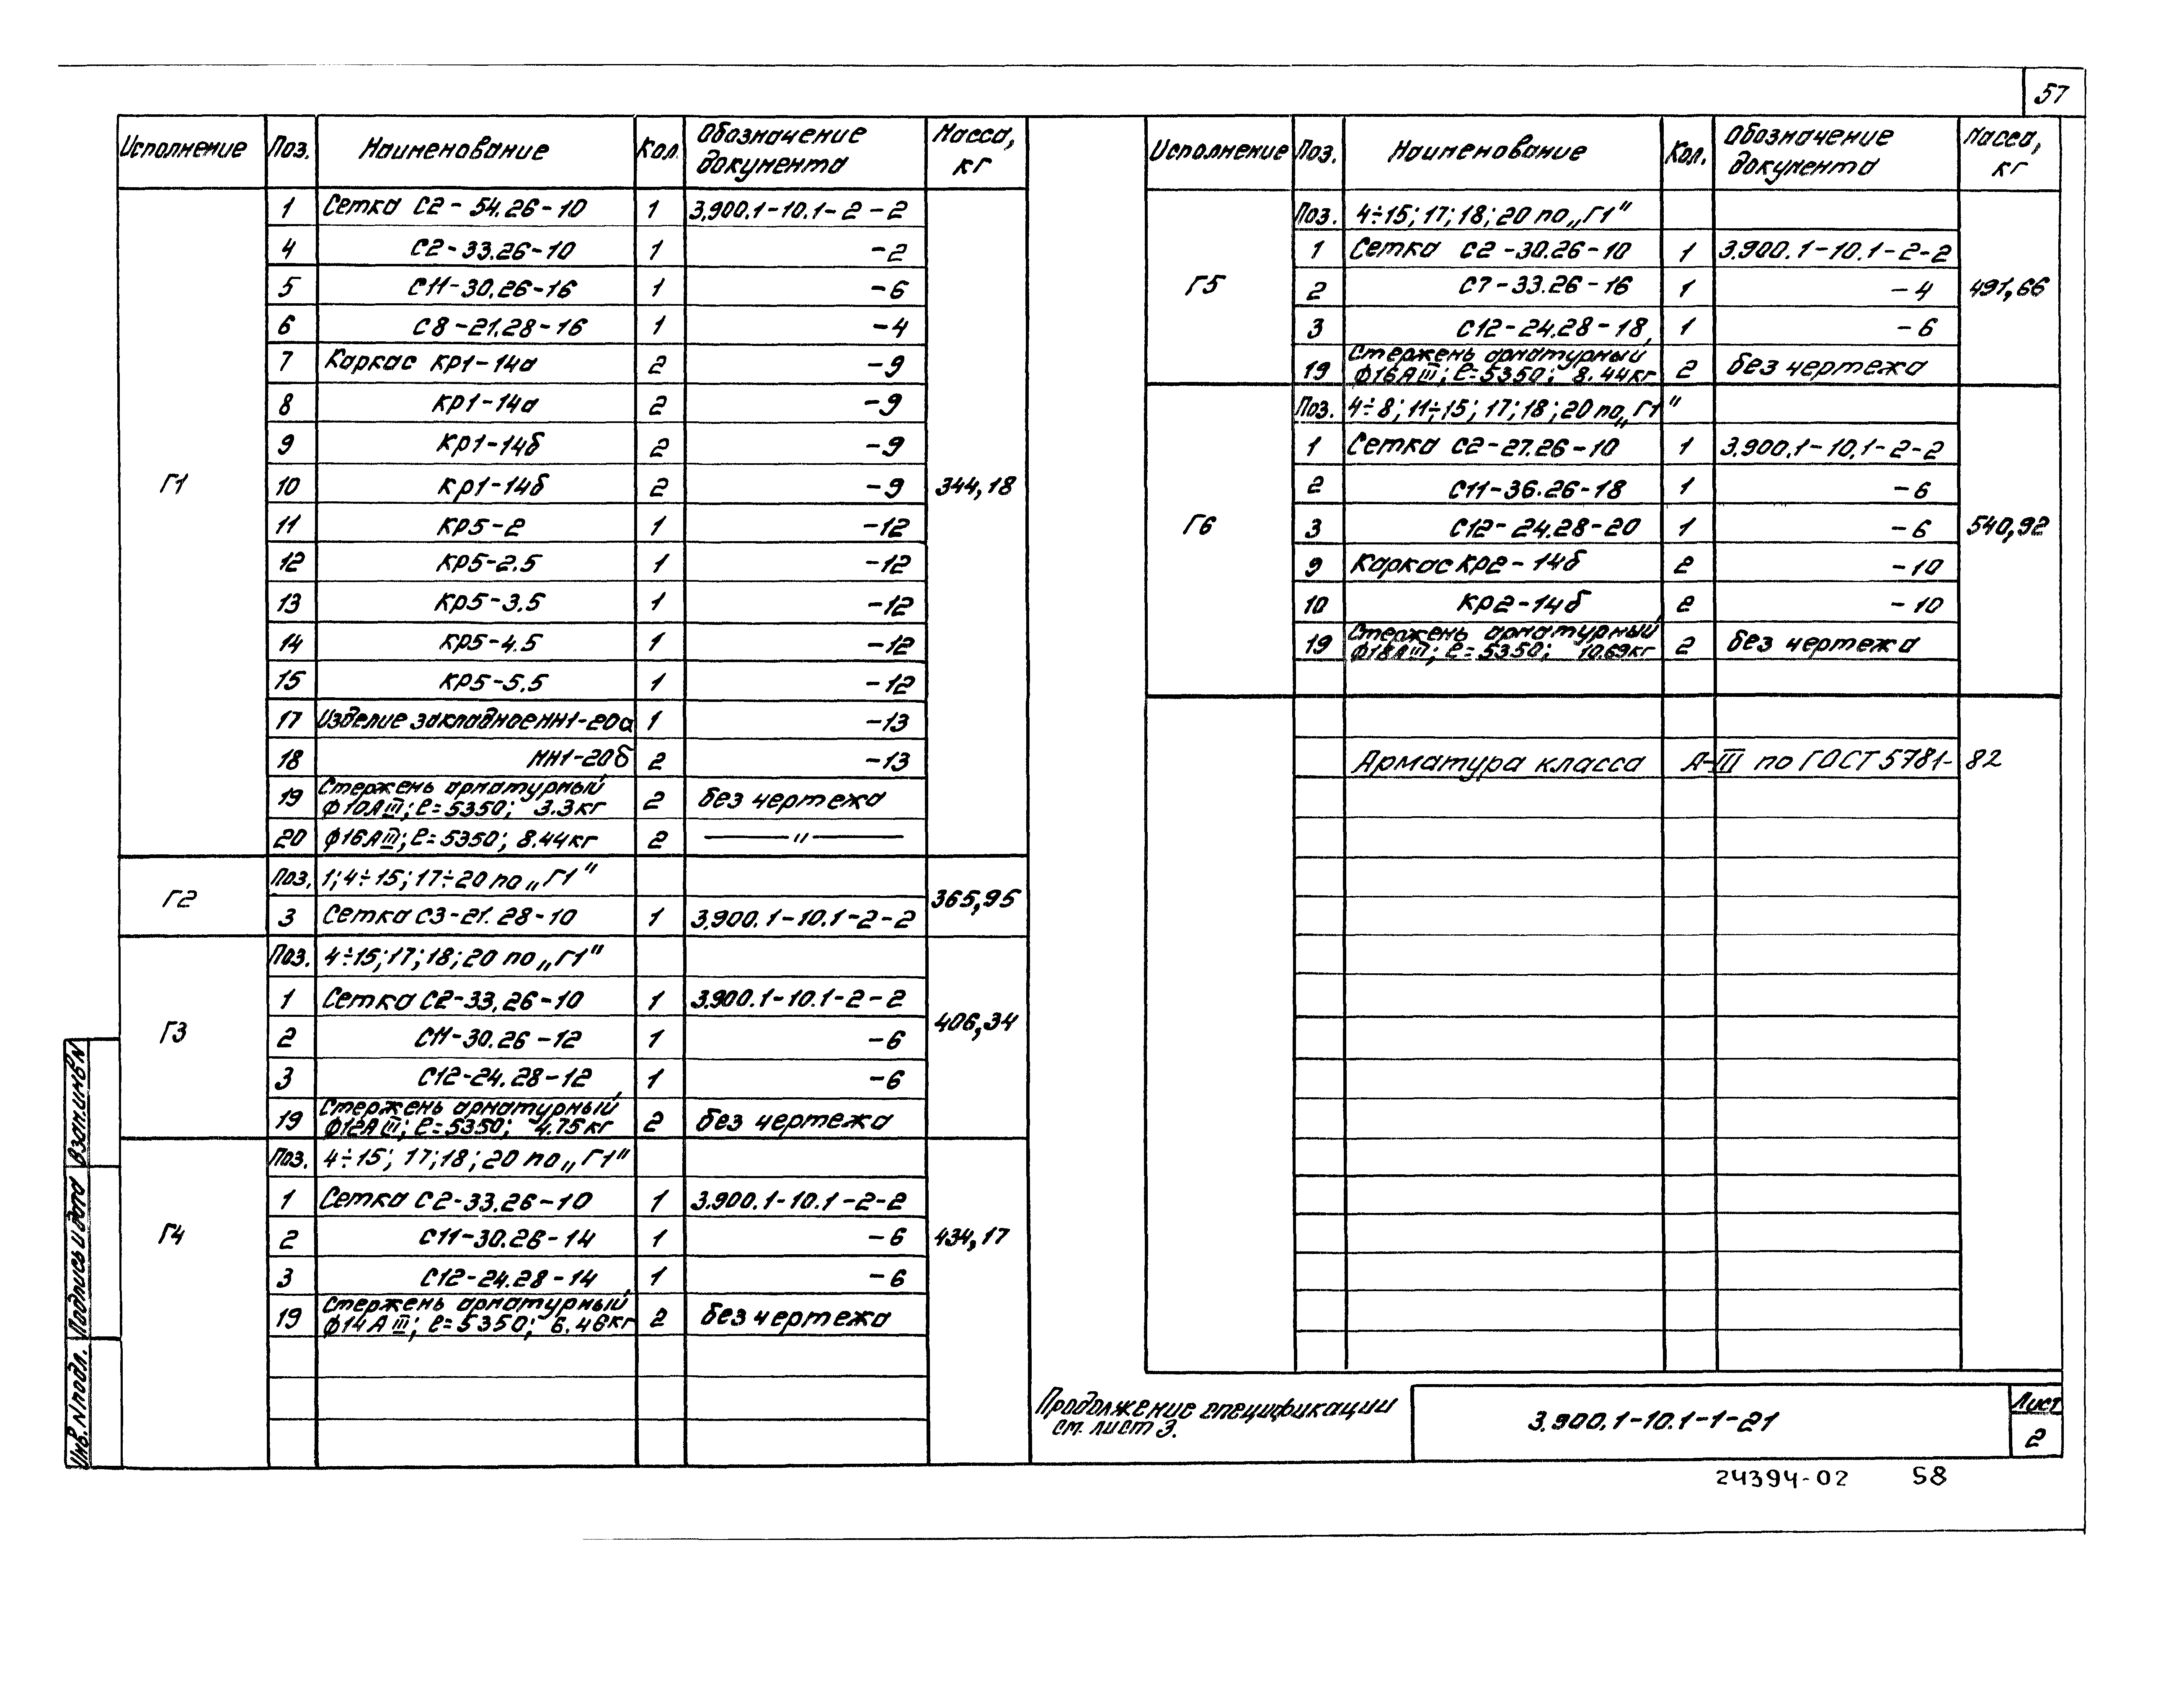 57
Исполнение Поз. Наименование Кол. Обозначение документа Масса, кг
Г1 344,18
1 Сетка С2-54.26-10 1 3.900.1-10.1-2-2
4 С2-33.26-10 1 -2
5 С11-30.26-16 1 -6
6 С8-21.28-16 1 -4
7 Каркас КР1-14а 2 -9
8 КР1-14а 2 -9
9 КР1-14б 2 -9
10 КР1-14б 2 -9
11 КР5-2 1 -12
12 КР5-2.5 1 -12
13 КР5-3.5 1 -12
14 КР5-4.5 1 -12
15 КР5-5.5 1 -12
17 Изделие закладное МН1-20а 1 -13
18 МН1-20б 2 -13
19 Стержень арматурный
ф10АIII; ℓ=5350; 3.3кг 2 без чертежа
20 ф16АIII; ℓ=5350; 8.44кг 2 — " —
Г2 365,95
Поз. 1; 4÷15; 17÷20 по „Г1"
3 Сетка С3-21.28-10 1 3.900.1-10.1-2-2
Г3 406,34
Поз. 4÷15; 17; 18; 20 по „Г1"
1 Сетка С2-33.26-10 1 3.900.1-10.1-2-2
2 С11-30.26-12 1 -6
3 С12-24.28-12 1 -6
19 Стержень арматурный
ф12АIII; ℓ=5350; 4.75кг 2 без чертежа
Г4 434,17
Поз. 4÷15; 17; 18; 20 по „Г1"
1 Сетка С2-33.26-10 1 3.900.1-10.1-2-2
2 С11-30.26-14 1 -6
3 С12-24.28-14 1 -6
19 Стержень арматурный
ф14АIII; ℓ=5350; 6.46кг 2 без чертежа
Исполнение Поз. Наименование Кол. Обозначение документа Масса, кг
Г5 491,66
Поз. 4÷15; 17; 18; 20 по „Г1"
1 Сетка С2-30.26-10 1 3.900.1-10.1-2-2
2 С7-33.26-16 1 -4
3 С12-24.28-18 1 -6
19 Стержень арматурный
ф16АIII; ℓ=5350; 8.44кг 2 без чертежа
Г6 540,92
Поз. 4÷8; 11÷15; 17; 18; 20 по „Г1"
1 Сетка С2-27.26-10 1 3.900.1-10.1-2-2
2 С11-36.26-18 1 -6
3 С12-24.28-20 1 -6
9 Каркас КР2-14б 2 -10
10 КР2-14б 2 -10
19 Стержень арматурный
ф18АIII; ℓ=5350; 10.69кг 2 без чертежа
Арматура класса А-III по ГОСТ 5781-82
Продолжение спецификации
см. лист 3.
3.900.1-10.1-1-21
Лист
2
24394-02 58
Взам.инв.N
Подпись и дата
Инв.N подл.